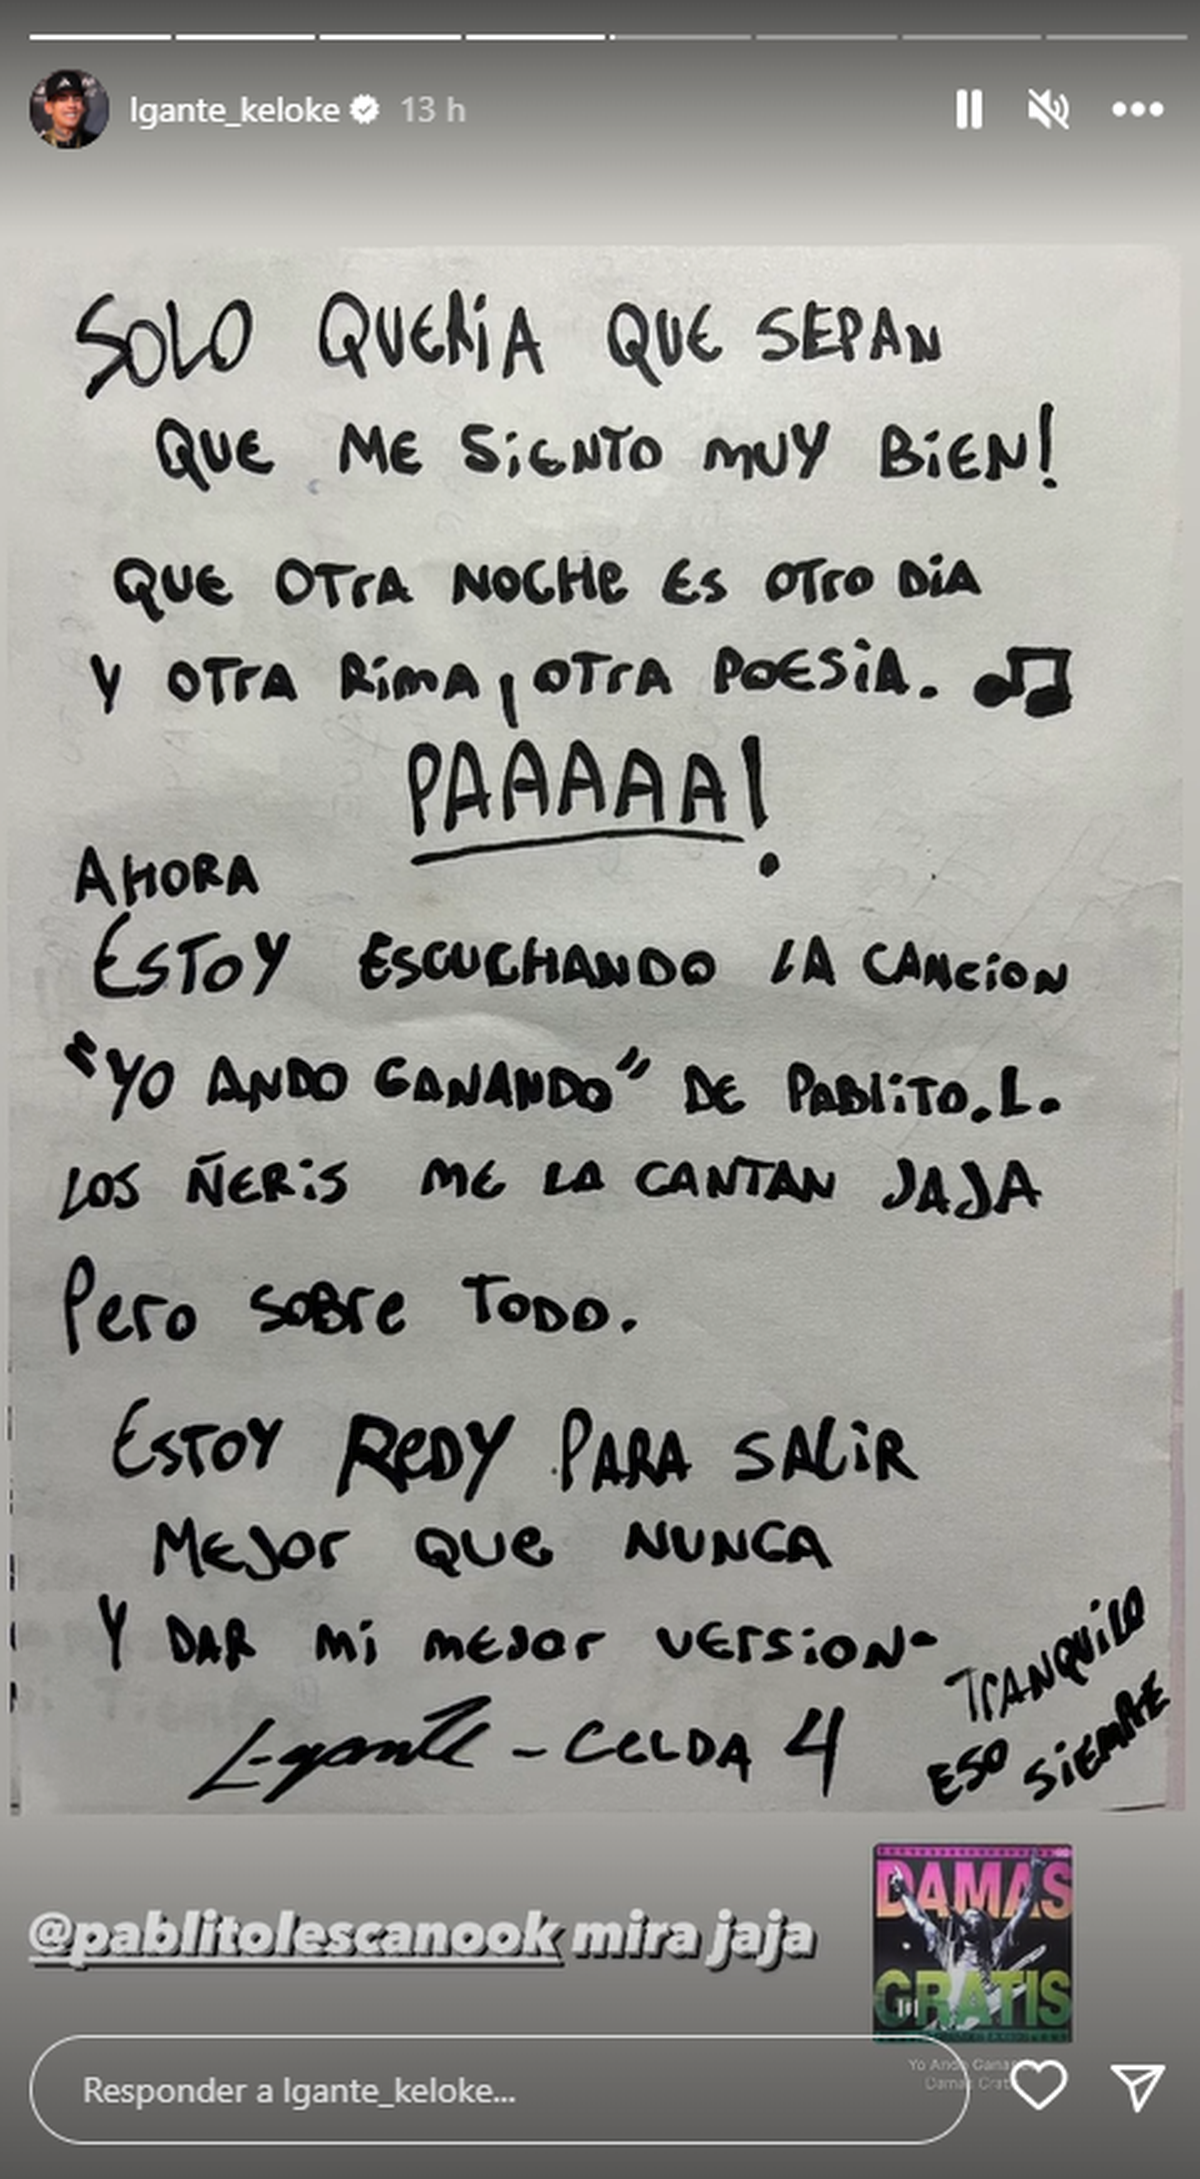 lgante_keloke 13 h
SOLO QUERIA QUE SEPAN
QUE ME SIENTO MUY BIEN!
QUE OTRA NOCHE ES OTRO DIA
Y OTRA RIMA, OTRA POESIA.
PAAAAA!
AHORA
ESTOY ESCUCHANDO LA CANCION
"YO ANDO GANANDO" DE PABLITO.L.
LOS ÑERIS ME LA CANTAN JAJA
Pero SOBRE TODO.
ESTOY REDY PARA SALIR
MEJOR QUE NUNCA
Y DAR MI MEJOR VERSION.
L-gante - CELDA 4
TRANQUILO
ESO SIEMPRE
@pablitolescanook mira jaja
DAMAS
GRATIS
Yo Ando
Damas
Responder a lgante_keloke...